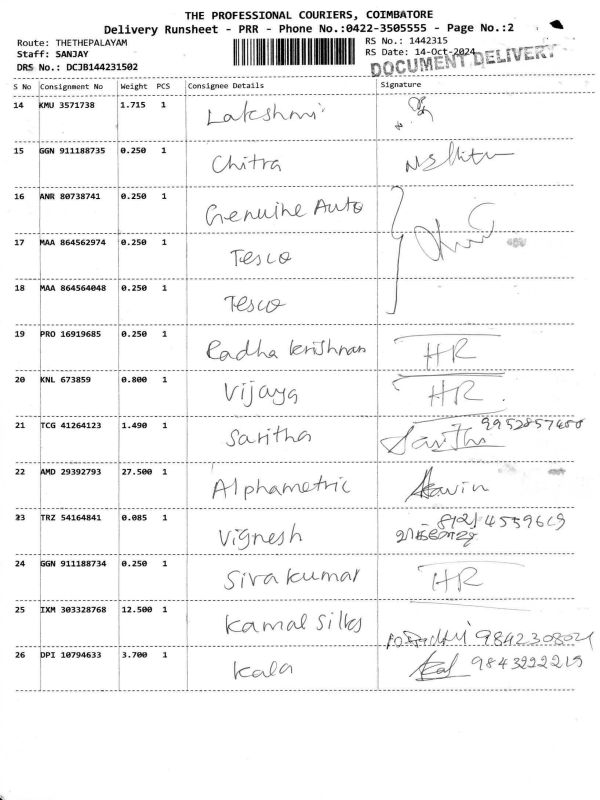 THE PROFESSIONAL COURIERS, COIMBATORE
Delivery Runsheet - PRR - Phone No.:0422-3505555 - Page No.:2
Route: THETHEPALAYAM RS No.: 1442315
Staff: SANJAY RS Date: 14-Oct-2024
DRS No.: DCJB144231502 DOCUMENT DELIVERY
S No Consignment No Weight PCS Consignee Details Signature
14 KMU 3571738 1.715 1 Lakshmi
15 GGN 911188735 0.250 1 Chitra
16 ANR 80738741 0.250 1 Genuine Auto
17 MAA 864562974 0.250 1 Tesco
18 MAA 864564048 0.250 1 Tesco
19 PRO 16919685 0.250 1 Radha krishnan HR
20 KNL 673859 0.800 1 Vijaya HR
21 TCG 41264123 1.490 1 Saritha
22 AMD 29392793 27.500 1 Alphametric
23 TRZ 54164841 0.085 1 Vignesh
24 GGN 911188734 0.250 1 Sivakumar HR
25 IXM 303328768 12.500 1 Kamal Silks
26 DPI 10794633 3.700 1 Kala 9843222215